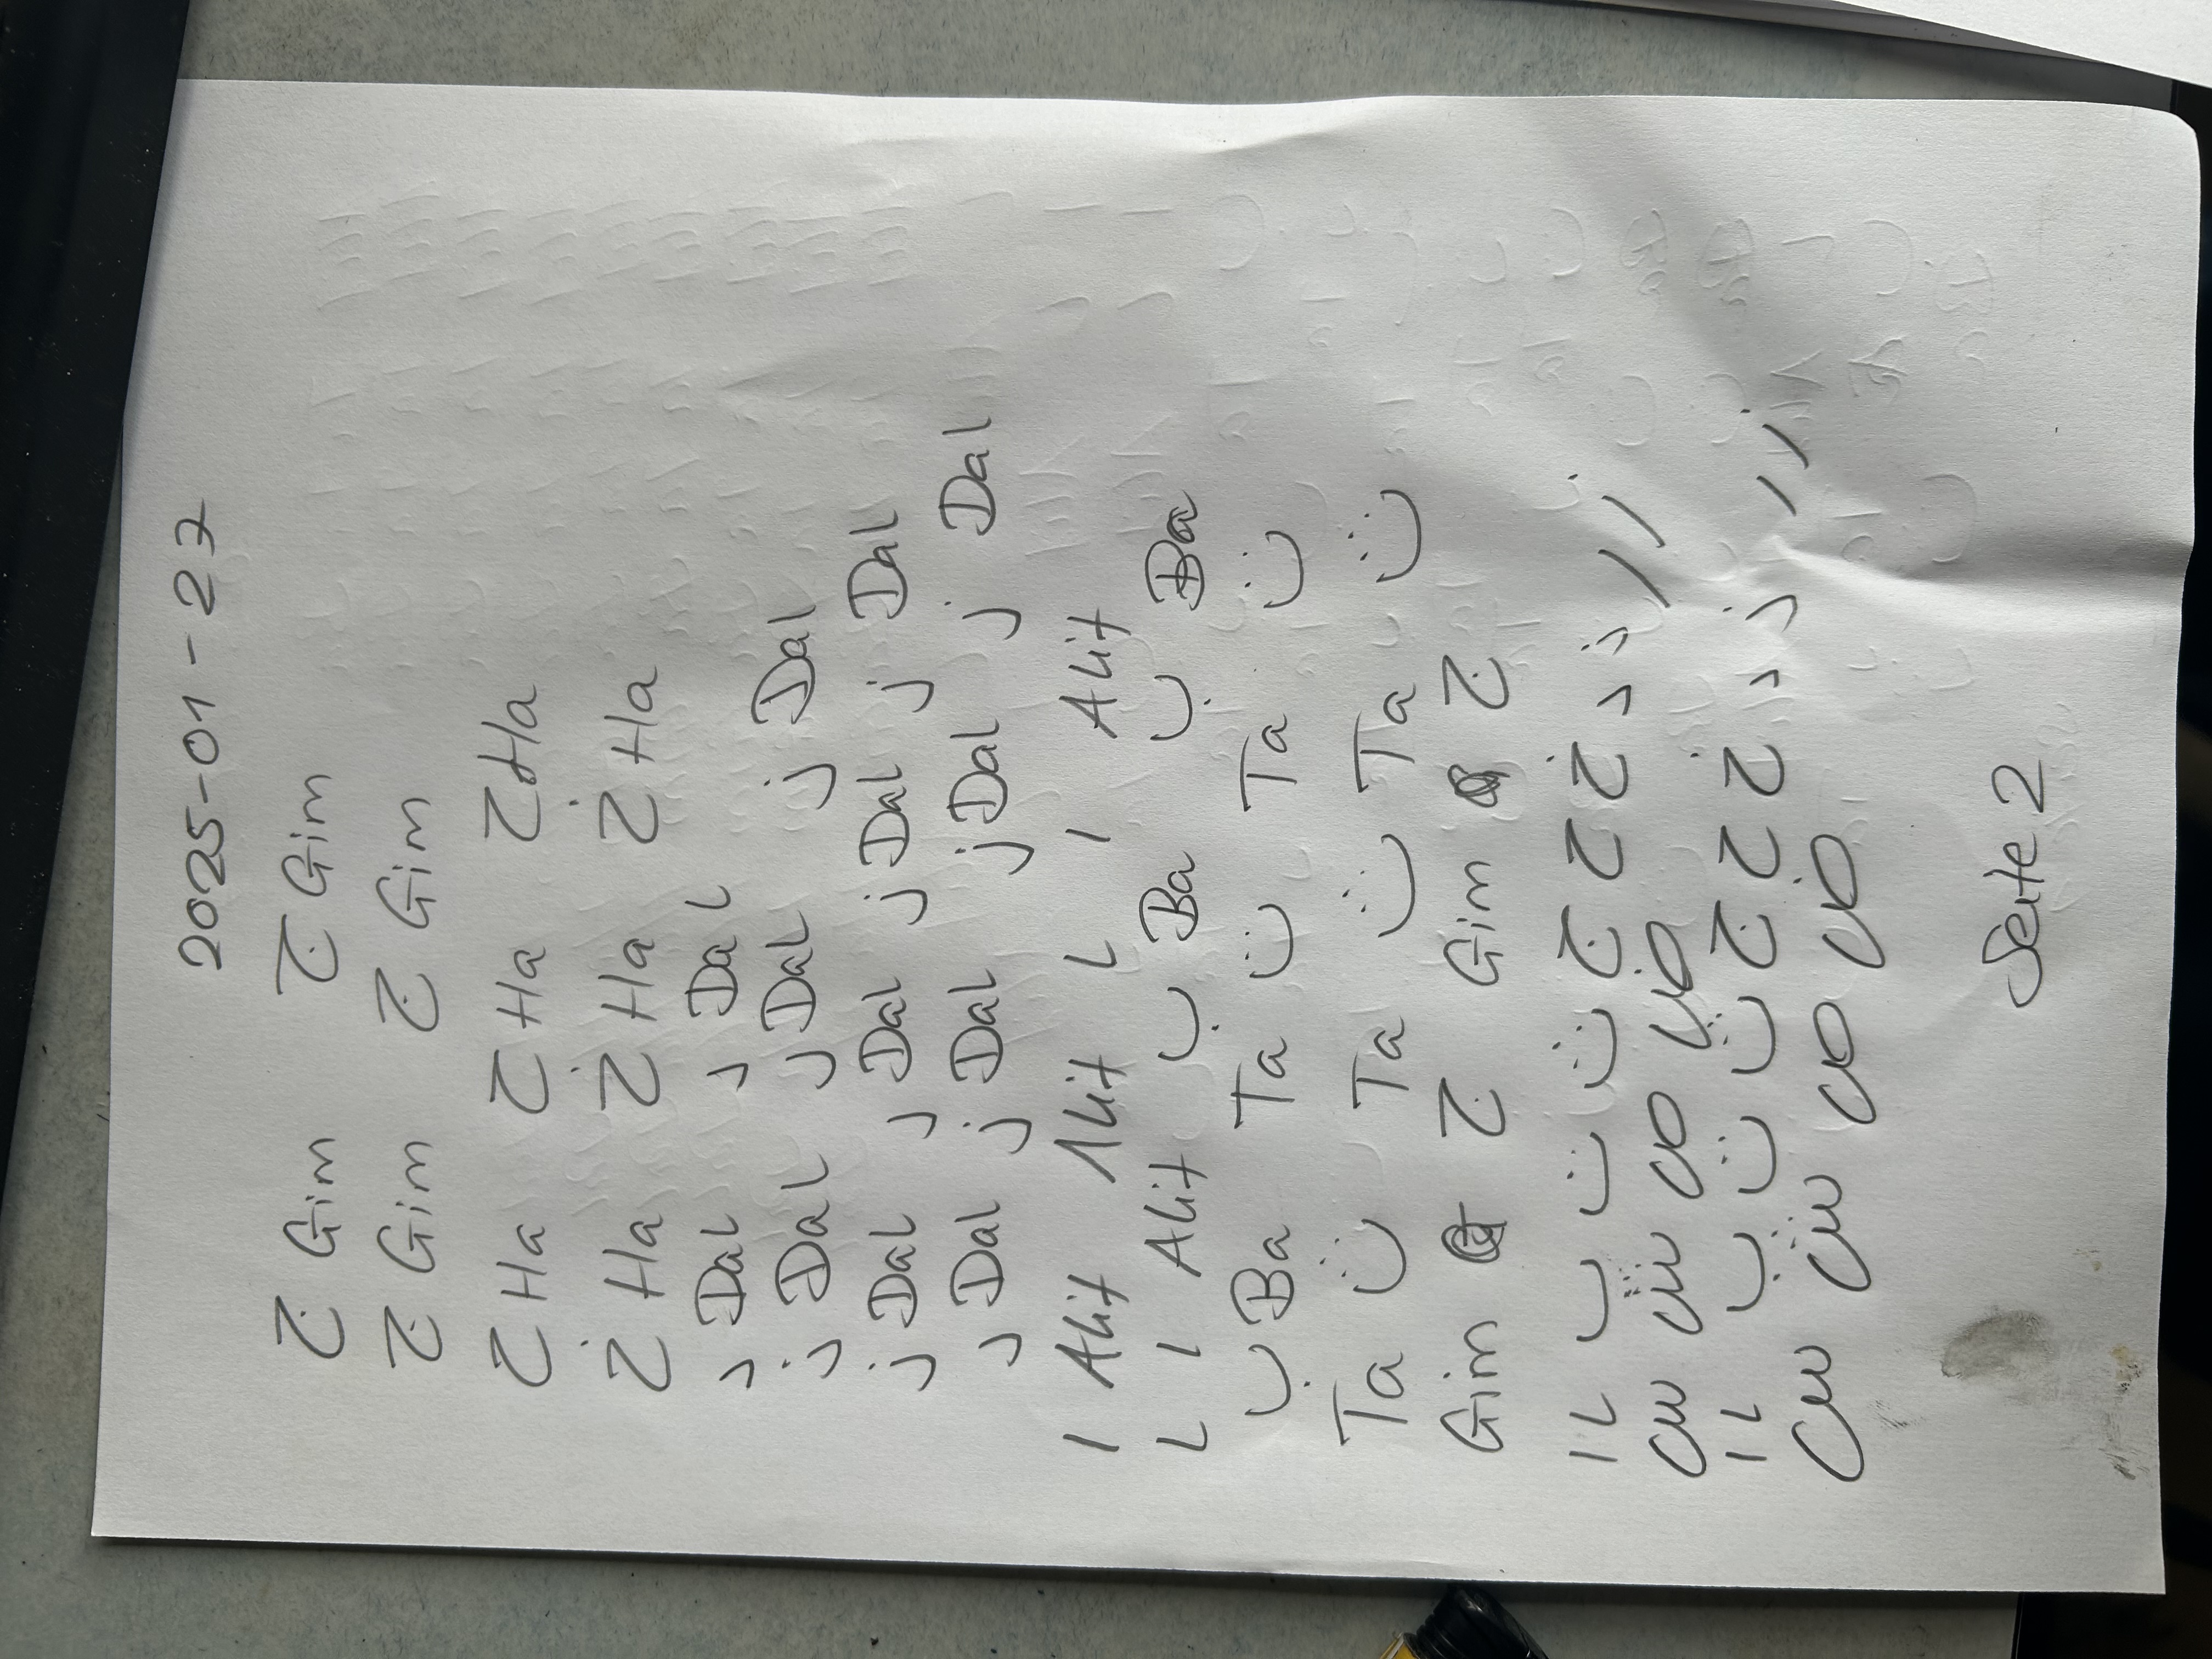 2025-01-27
ج Gim ج Gim
ج Gim ج Gim
ح Ha ح Ha ح Ha
خ Ha خ Ha خ Ha
د Dal د Dal
ذ Dal د Dal ذ Dal
ذ Dal د Dal ذ Dal ذ Dal
د Dal ذ Dal ذ Dal ذ Dal
ا Alif Alif L ا Alif
L ا Alif ب Ba ب Ba
ب Ba Ta ت Ta ت
Ta ث Ta ث Ta ث
Gim ج Gim ج
ا L ب ت ث ج ح خ د ذ ر ز
س ش ص ض
ا L ب ت ث ج ح خ د ذ ر ز
س ش ص ض
Seite 2